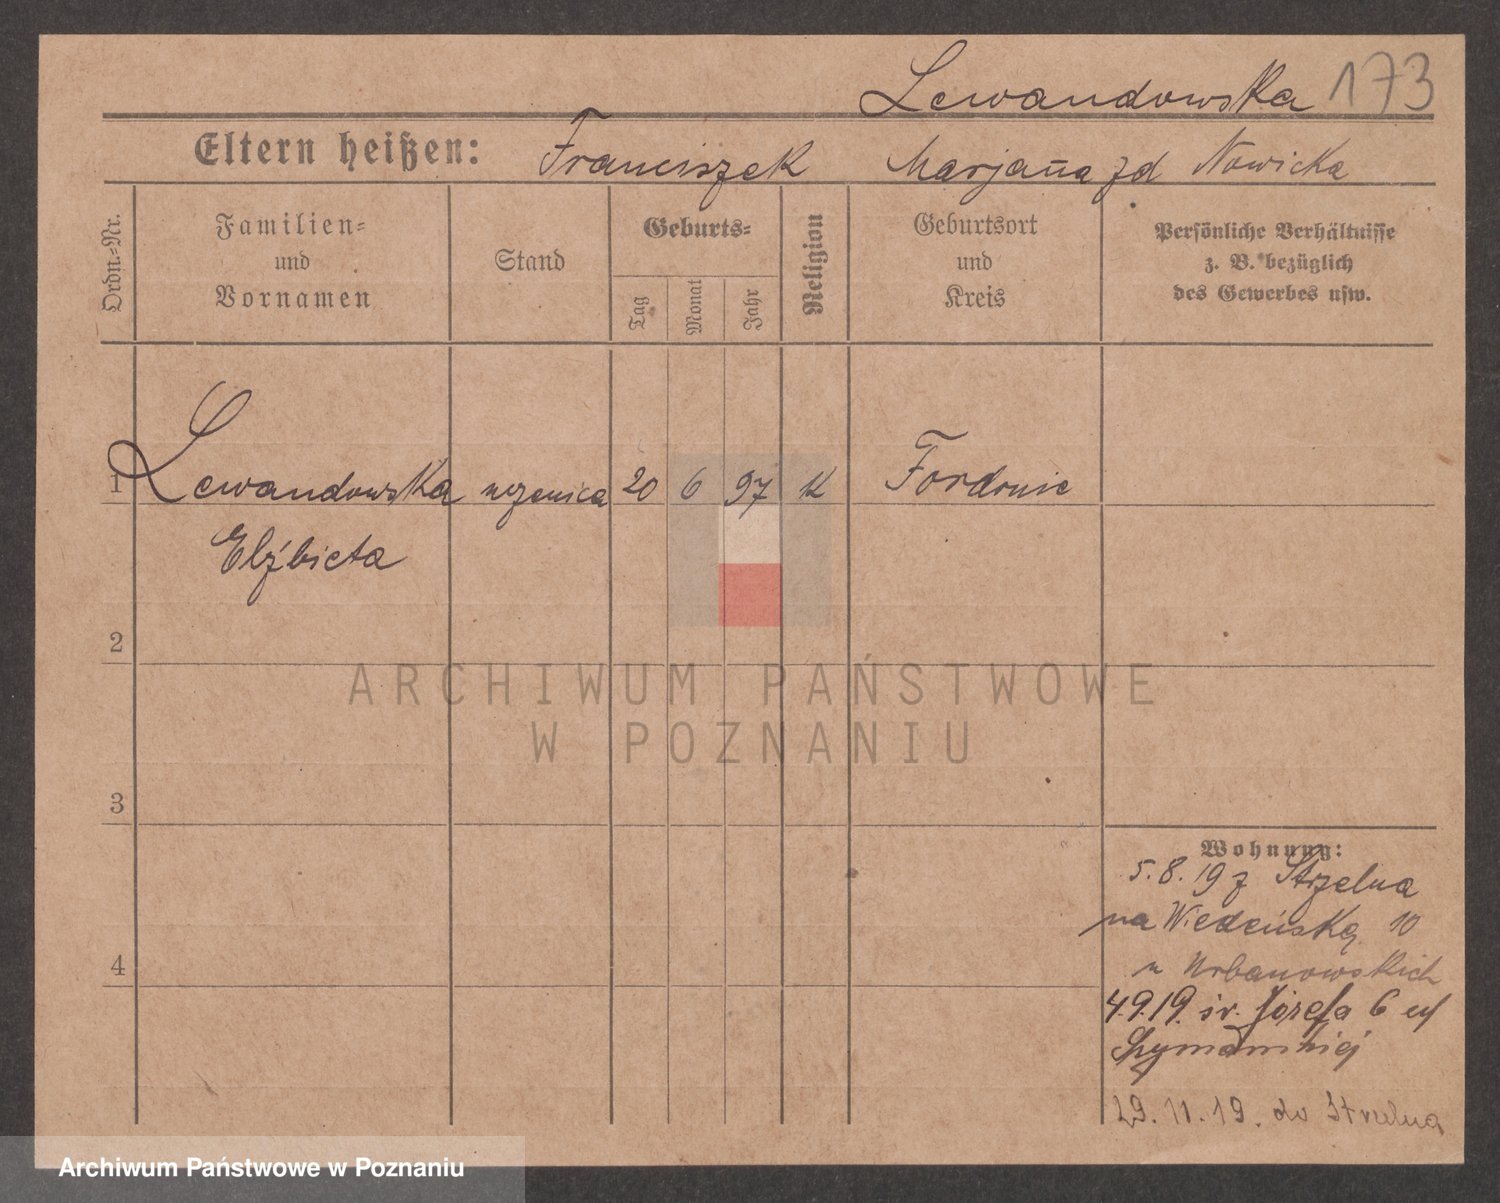 Lewandowska 173
Eltern heißen: Franciszek Marjanna zd Nowicka
Ordn.=Nr.
Familien=
und
Vornamen
Stand
Geburts=
Tag
Monat
Jahr
Religion
Geburtsort
und
Kreis
Persönliche Verhältnisse
z. B. bezüglich
des Gewerbes usw.
1 Lewandowska uczenica 20 6 97 K Fordonie
Elżbieta
2
3
4
Wohnung:
5.8.19 z Strzelna
na Wiedeńską 10
u Urbanowskich
4.9.19. św. Józefa 6
Szymańskiej
29.11.19. do Strzelna
ARCHIWUM PAŃSTWOWE
W POZNANIU
Archiwum Państwowe w Poznaniu